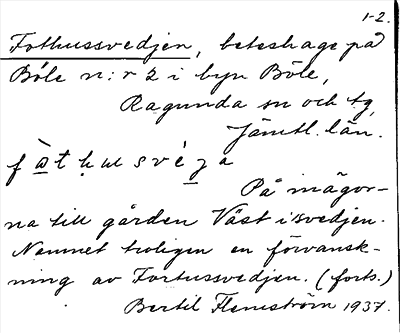 1-2.
Fothussvedjen, beteshage på
Böle n:r 2 i byn Böle,
Ragunda sn och tg,
Jämtl. län.
På mägor-
na till gården Väst i svedjen.
Namnet troligen en förvansk-
ning av Fortussvedjen. (forts.)
Bertil Flemström 1937.